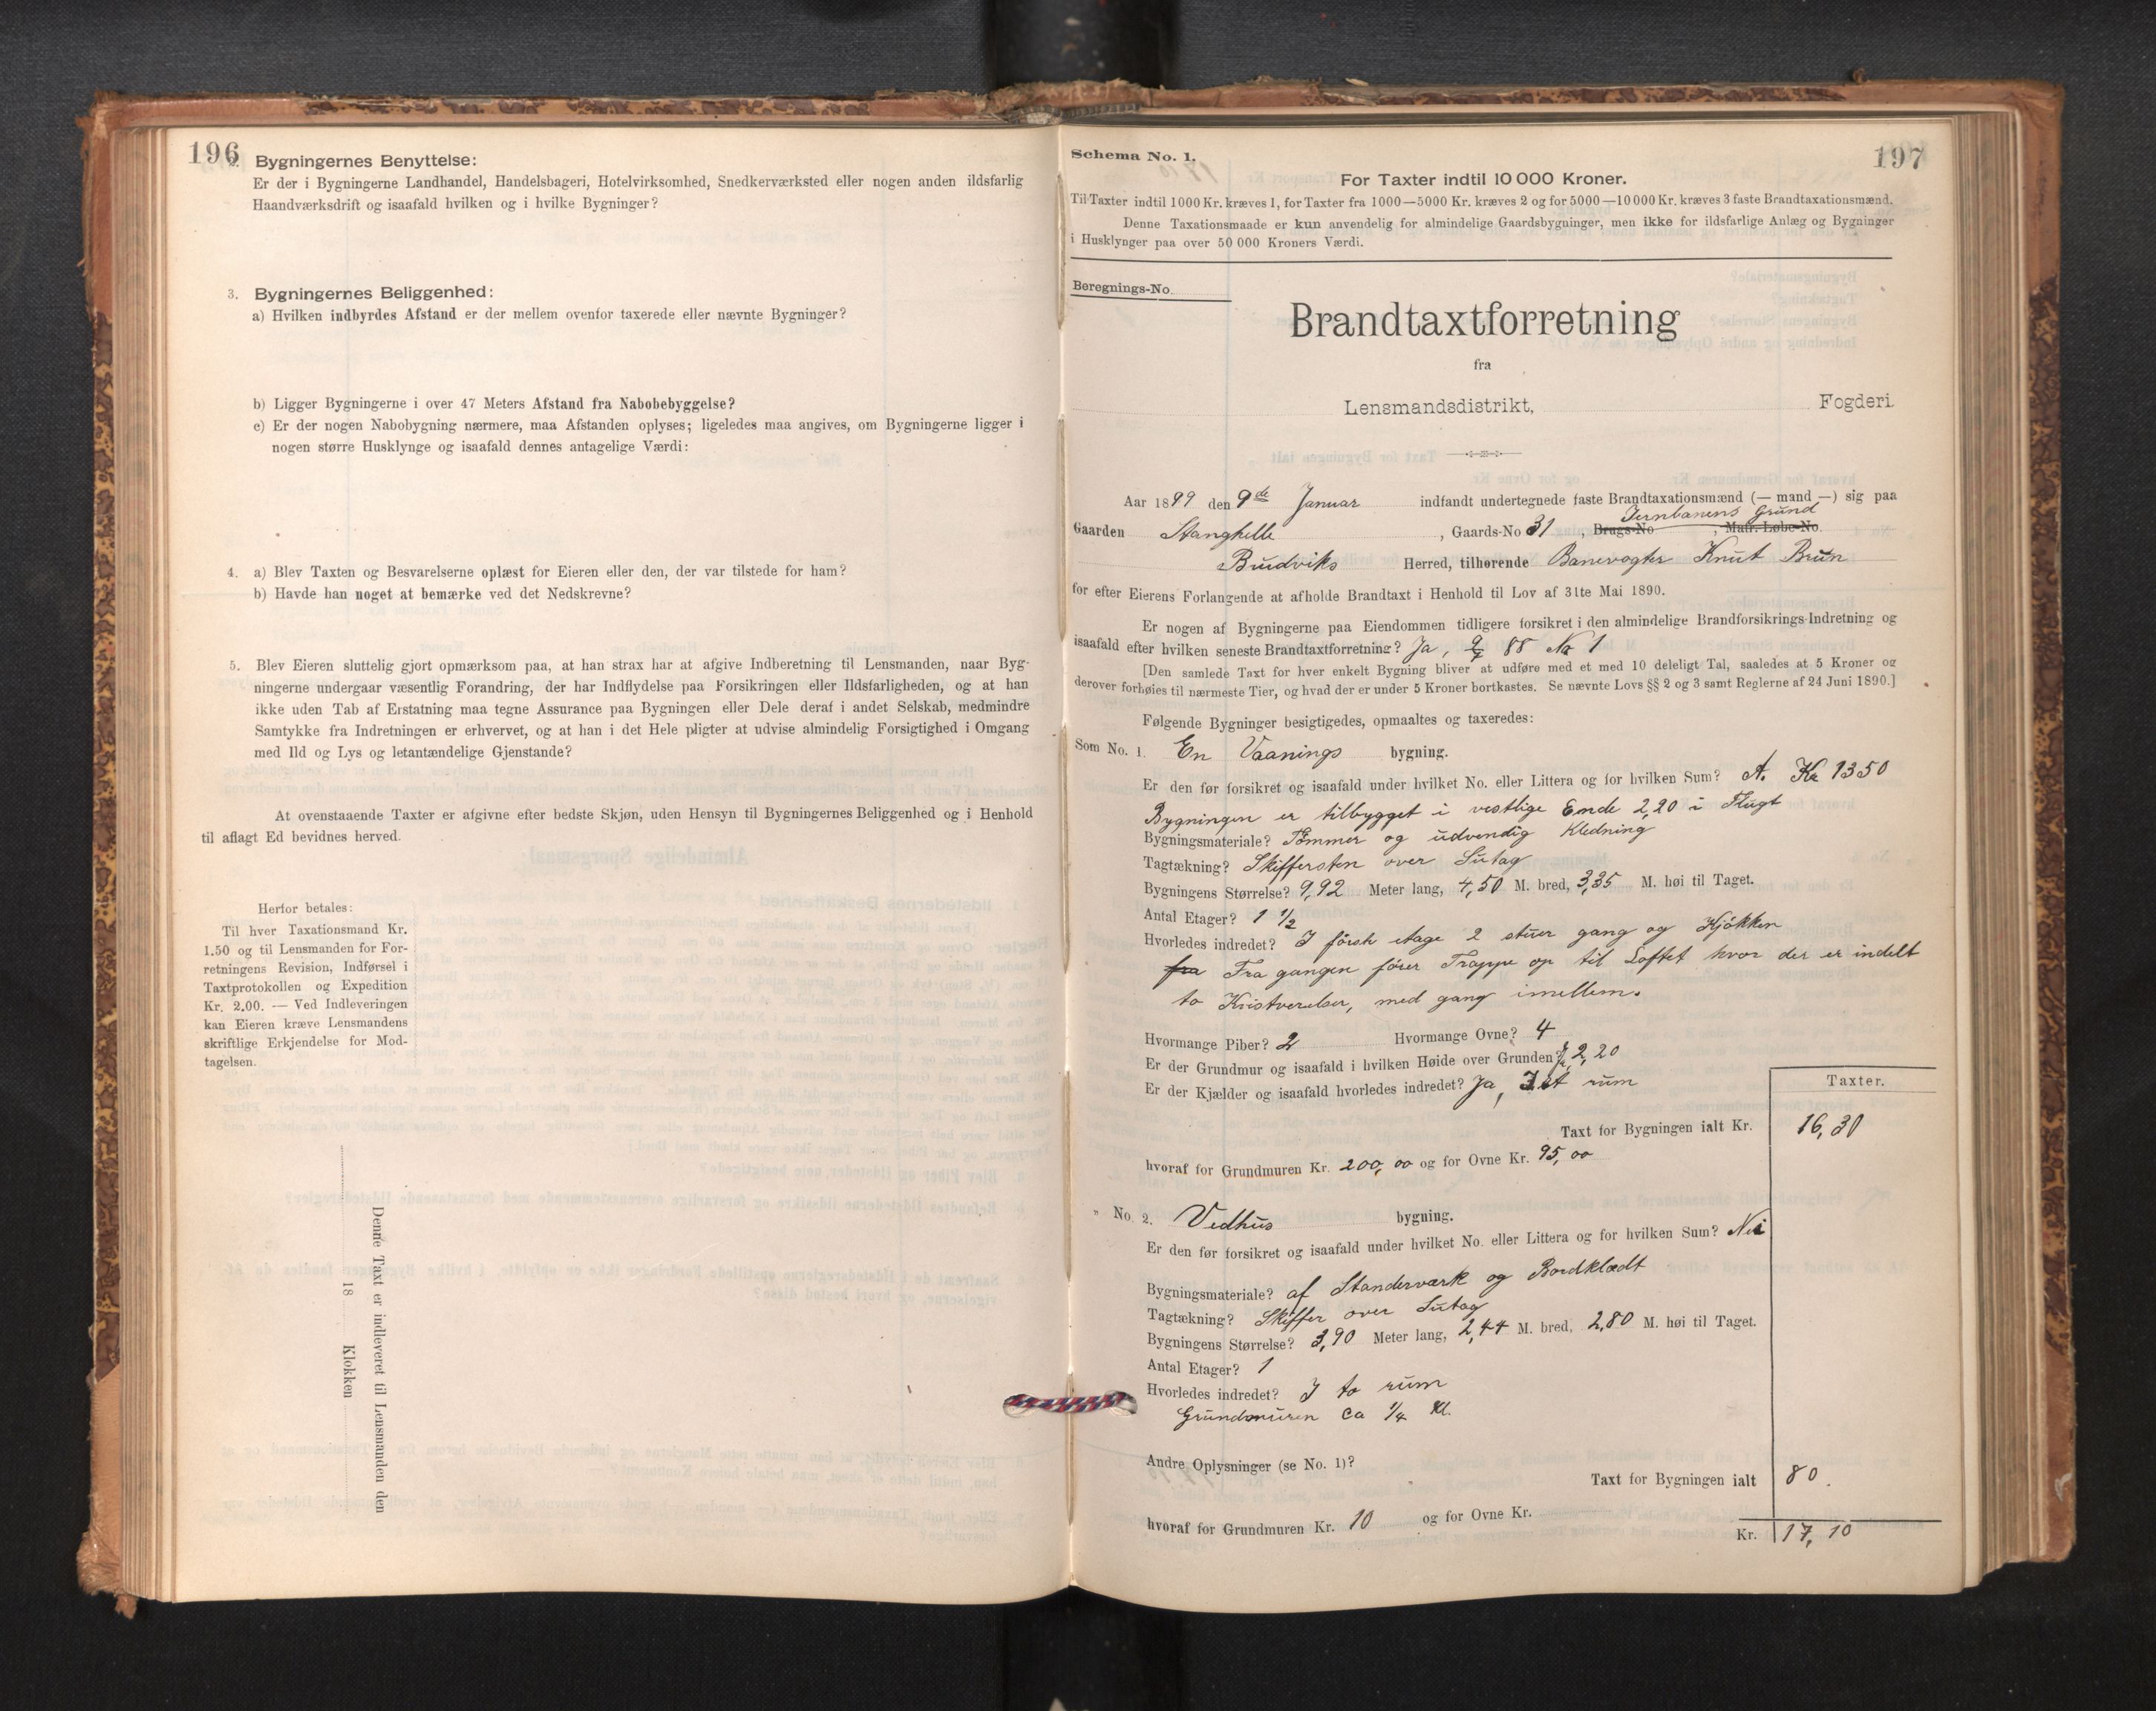 196
2. Bygningernes Benyttelse:
Er der i Bygningerne Landhandel, Handelsbageri, Hotelvirksomhed, Snedkerværksted eller nogen anden ildsfarlig
Haandværksdrift og isaafald hvilken og i hvilke Bygninger?
3. Bygningernes Beliggenhed:
a) Hvilken indbyrdes Afstand er der mellem ovenfor taxerede eller nævnte Bygninger?
b) Ligger Bygningerne i over 47 Meters Afstand fra Nabobebyggelse?
c) Er der nogen Nabobygning nærmere, maa Afstanden oplyses; ligeledes maa angives, om Bygningerne ligger i
nogen større Husklynge og isaafald dennes antagelige Værdi:
4. a) Blev Taxten og Besvarelserne oplæst for Eieren eller den, der var tilstede for ham?
b) Havde han noget at bemærke ved det Nedskrevne?
5. Blev Eieren sluttelig gjort opmærksom paa, at han strax har at afgive Indberetning til Lensmanden, naar Byg-
ningerne undergaar væsentlig Forandring, der har Indflydelse paa Forsikringen eller Ildsfarligheden, og at han
ikke uden Tab af Erstatning maa tegne Assurance paa Bygningen eller Dele deraf i andet Selskab, medmindre
Samtykke fra Indretningen er erhvervet, og at han i det Hele pligter at udvise almindelig Forsigtighed i Omgang
med Ild og Lys og letantændelige Gjenstande?
At ovenstaaende Taxter er afgivne efter bedste Skjøn, uden Hensyn til Bygningernes Beliggenhed og i Henhold
til aflagt Ed bevidnes herved.
Herfor betales:
Til hver Taxationsmand Kr.
1.50 og til Lensmanden for For-
retningens Revision, Indførsel i
Taxtprotokollen og Expedition
Kr. 2.00. — Ved Indleveringen
kan Eieren kræve Lensmandens
skriftlige Erkjendelse for Mod-
tagelsen.
Denne Taxt er indleveret til Lensmanden den
18 Klokken
197
Schema No. 1.
For Taxter indtil 10 000 Kroner.
Til Taxter indtil 1000 Kr. kræves 1, for Taxter fra 1000—5000 Kr. kræves 2 og for 5000—10 000 Kr. kræves 3 faste Brandtaxationsmænd.
Denne Taxationsmaade er kun anvendelig for almindelige Gaardsbygninger, men ikke for ildsfarlige Anlæg og Bygninger
i Husklynger paa over 50 000 Kroners Værdi.
Beregnings-No.
Brandtaxtforretning
fra
Lensmandsdistrikt, Fogderi.
Aar 1899 den 9de Januar indfandt undertegnede faste Brandtaxationsmænd (— mand —) sig paa
Jernbanens Grund
Gaarden Stanghelle, Gaards-No 31, Brugs-No , Matr. Løbe-No.
Brudviks Herred, tilhørende Banevogter Knut Brun
for efter Eierens Forlangende at afholde Brandtaxt i Henhold til Lov af 31te Mai 1890.
Er nogen af Bygningerne paa Eiendommen tidligere forsikret i den almindelige Brandforsikrings-Indretning og
isaafald efter hvilken seneste Brandtaxtforretning? Ja, 9/7 88 No 1
[Den samlede Taxt for hver enkelt Bygning bliver at udføre med et med 10 deleligt Tal, saaledes at 5 Kroner og
derover forhøies til nærmeste Tier, og hvad der er under 5 Kroner bortkastes. Se nævnte Lovs §§ 2 og 3 samt Reglerne af 24 Juni 1890.]
Følgende Bygninger besigtigedes, opmaaltes og taxeredes:
Som No. 1. En Vaanings bygning.
Er den før forsikret og isaafald under hvilket No. eller Littera og for hvilken Sum? A. Kr 1350
Bygningen er tilbygget i vestlige Ende 2,20 i Flugt
Bygningsmateriale? Tømmer og udvendig Kledning
Tagtækning? Skiffersten over Sutag
Bygningens Størrelse? 9,92 Meter lang, 4,50 M. bred, 3,35 M. høi til Taget.
Antal Etager? 1 1/2
Hvorledes indredet? I første etage 2 stuer gang og Kjøkken
fra Fra gangen fører Trappe op til Loftet hvor der er indelt
to Kvistverelser, med gang imellem.
Hvormange Piber? 2 Hvormange Ovne? 4
Er der Grundmur og isaafald i hvilken Høide over Grunden? Ja 2,20
Er der Kjælder og isaafald hvorledes indredet? Ja, I et rum
Taxter.
Taxt for Bygningen ialt Kr. 16,30
hvoraf for Grundmuren Kr. 200,00 og for Ovne Kr. 95,00
" No. 2. Vedhus bygning.
Er den før forsikret og isaafald under hvilket No. eller Littera og for hvilken Sum? Nei
Bygningsmateriale? af Standerværk og Bordklædt
Tagtækning? Skiffer over Sutag
Bygningens Størrelse? 3,90 Meter lang, 2,44 M. bred, 2,80 M. høi til Taget.
Antal Etager? 1
Hvorledes indredet? I to rum
Grundmuren ca 1/4 M.
Andre Oplysninger (se No. 1)?
Taxt for Bygningen ialt 80.
hvoraf for Grundmuren Kr. 10 og for Ovne Kr.
Kr. 17,10